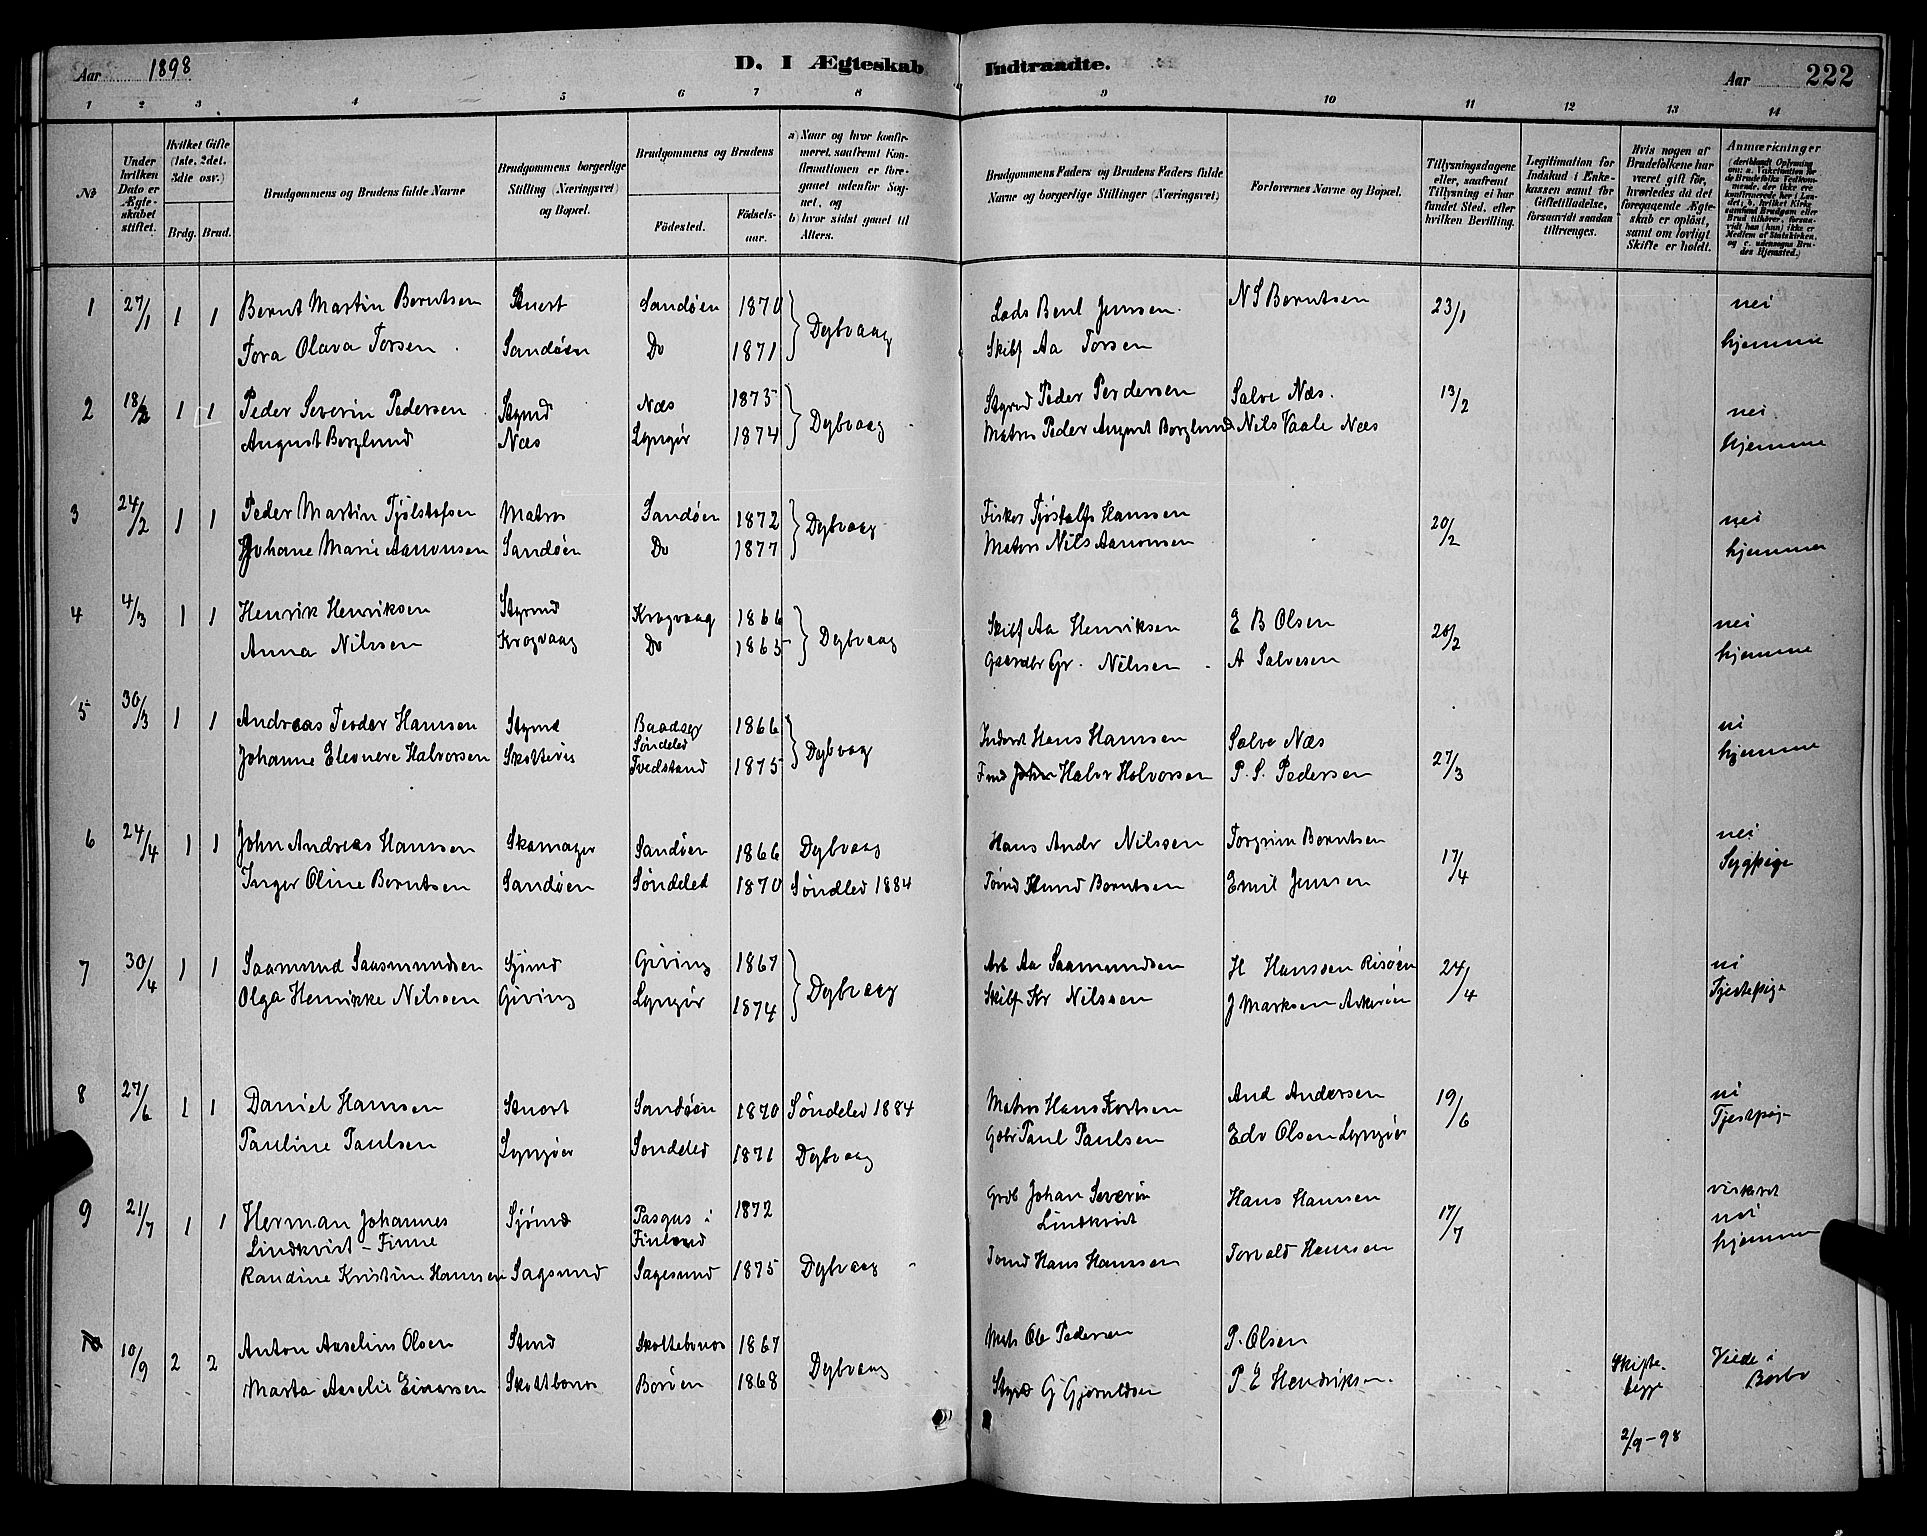 Aar 1898 D. I Ægteskab Indtraadte. Aar 222
1 2 3 4 5 6 7 8 9 10 11 12 13 14
No
Under hvilken Dato er Ægteskabet stiftet.
Hvilket Gifte (1ste, 2det, 3die osv.)
Brdg. Brud.
Brudgommens og Brudens fulde Navne
Brudgommens borgerlige Stilling (Næringsvei) og Bopæl.
Brudgommens og Brudens
Fødested. Fødselsaar.
a) Naar og hvor konfirmeret, saafremt Konfirmationen er foregaaet udenfor Sognet, og
b) hvor sidst gaaet til Alters.
Brudgommens Faders og Brudens Faders fulde Navne og borgerlige Stillinger (Næringsvei)
Forlovernes Navne og Bopæl.
Tillysningsdagene eller, saafremt Tillysning ei har fundet Sted, efter hvilken Bevilling.
Legitimation for Indskud i Enkekassen samt for Giftetilladelse, forsaavidt saadan tiltrænges.
Hvis nogen af Brudefolkene har været gift før, hvorledes da det foregaaende Ægteskab er opløst, samt om lovligt Skifte er holdt.
Anmærkninger
1 27/1 1 1 Bernt Martin Berntsen Sandøen 1870 Lods Bent Jensen. N S Berntsen 23/1 nei
Tora Olava Torsen Sandøen Do 1871 Dybvaag Skibf Aa Torsen hjemme
2 18/2 1 1 Peder Severin Pedersen Styrmd Næs 1873 Styrmd Peder Perdersen Salve Næs. 13/2 nei
August Borglund Næs Lyngør 1874 Dybvaag Matros Peder August Borglund Nils Vaale Næs hjemme
3 24/2 1 1 Peder Martin Tjølstofsen Matros Sandøen 1872 Dybvaag Fisker Tjøstolfs Hanssen 20/2 nei
Johane Marie Aanonsen Sandøen Do 1877 Matros Nils Aanonsen hjemme
4 4/3 1 1 Henrik Henriksen Styrmd Krogvaag 1866 Skibf Aa Henriksen E B Olsen 26/2 nei
Anna Nilssen Krogvaag Do 1865 Dybvaag Gaardbr Gr. Nilssen A Salvesen hjemme
5 30/3 1 1 Andreas Teodor Hansen Styrmd 1866 Hans Hansen Salve Næs ni
Søndeled
Johanne Eleonere Halvorsen Tvedstrand 1875 Dybvaag Halvor Halvorsen P. S. Pedersen 27/3 hjemme
6 24/4 1 1 John Andreas Hanssen Skomager Sandøen 1866 Dybvaag Hans Andr Nilssen Torgrim Berntsen 17/4 nei
Inger Oline Berntsen Sandøen Søndeled 1870 Søndled 1884 Tømd Berntsen Emil Jenssen Sypige
7 30/4 1 1 Saamund Saamundsen Sjømd Giving 1867 Arb Aa Saamundsen H Hanssen Risøen 24/4 ni
Olga Henrikke Nilssen Giving Lyngør 1874 Dybvaag Skibf Kr Nilssen J Marksen Askerøen Tjestepige
8 27/6 1 1 Daniel Hansen Sandøen 1870 Søndeled 1884 Matros Hans Kortsen And Andersen 19/6 ni
Pauline Paulsen Lyngøer Sondeled 1871 Dybvaag Paul Paulsen Edv Olsen Lyngør
9 21/7 1 1 Herman Johannes Sjømd i 1872 Johan Severin Hans Hansen 17/7
Lindkvist - Finne Finland Lindkvist nei
Randine Kristine Hansen Sagsund Sagesund 1875 Dybvaag Tømd Hans Hanssen Torvald Hanssen hjemme
10 10/9 2 2 Anton Anselius Olsen 1867 Matr Ole Pedersen P. Olsen
Marta Aaselie Einarsen Borøen 1868 Dybvaag G Gjeruldsen P. E Hendriksen. Skifte begge Viede i Barbo
2/9-98